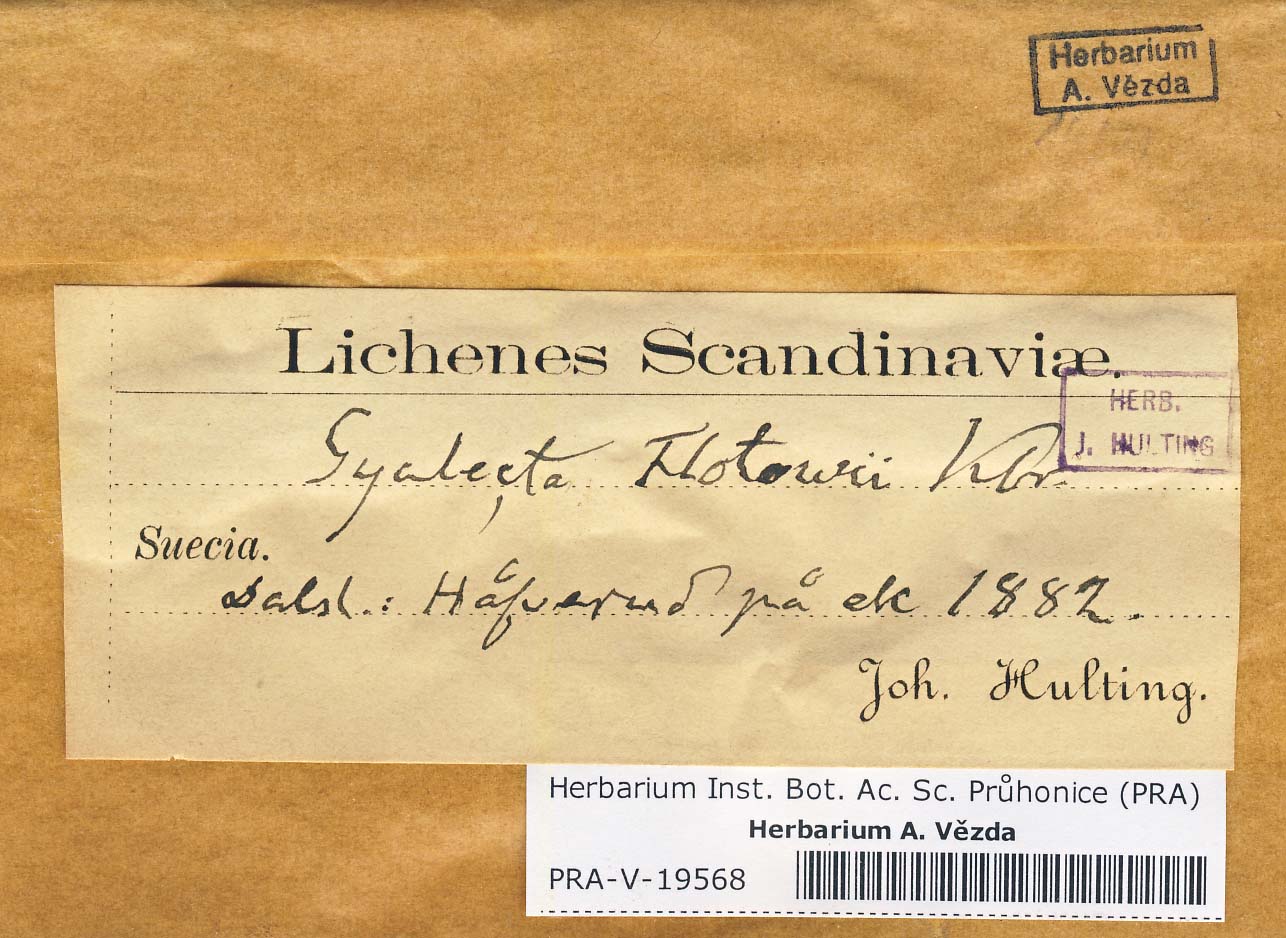 Herbarium
A. Vězda
Lichenes Scandinaviæ.
HERB.
J. HULTING
Gyalecta Flotowii Kbr.
Suecia.
Dalsl.: Håfverud på ek 1882.
Joh. Hulting.
Herbarium Inst. Bot. Ac. Sc. Průhonice (PRA)
Herbarium A. Vězda
PRA-V-19568